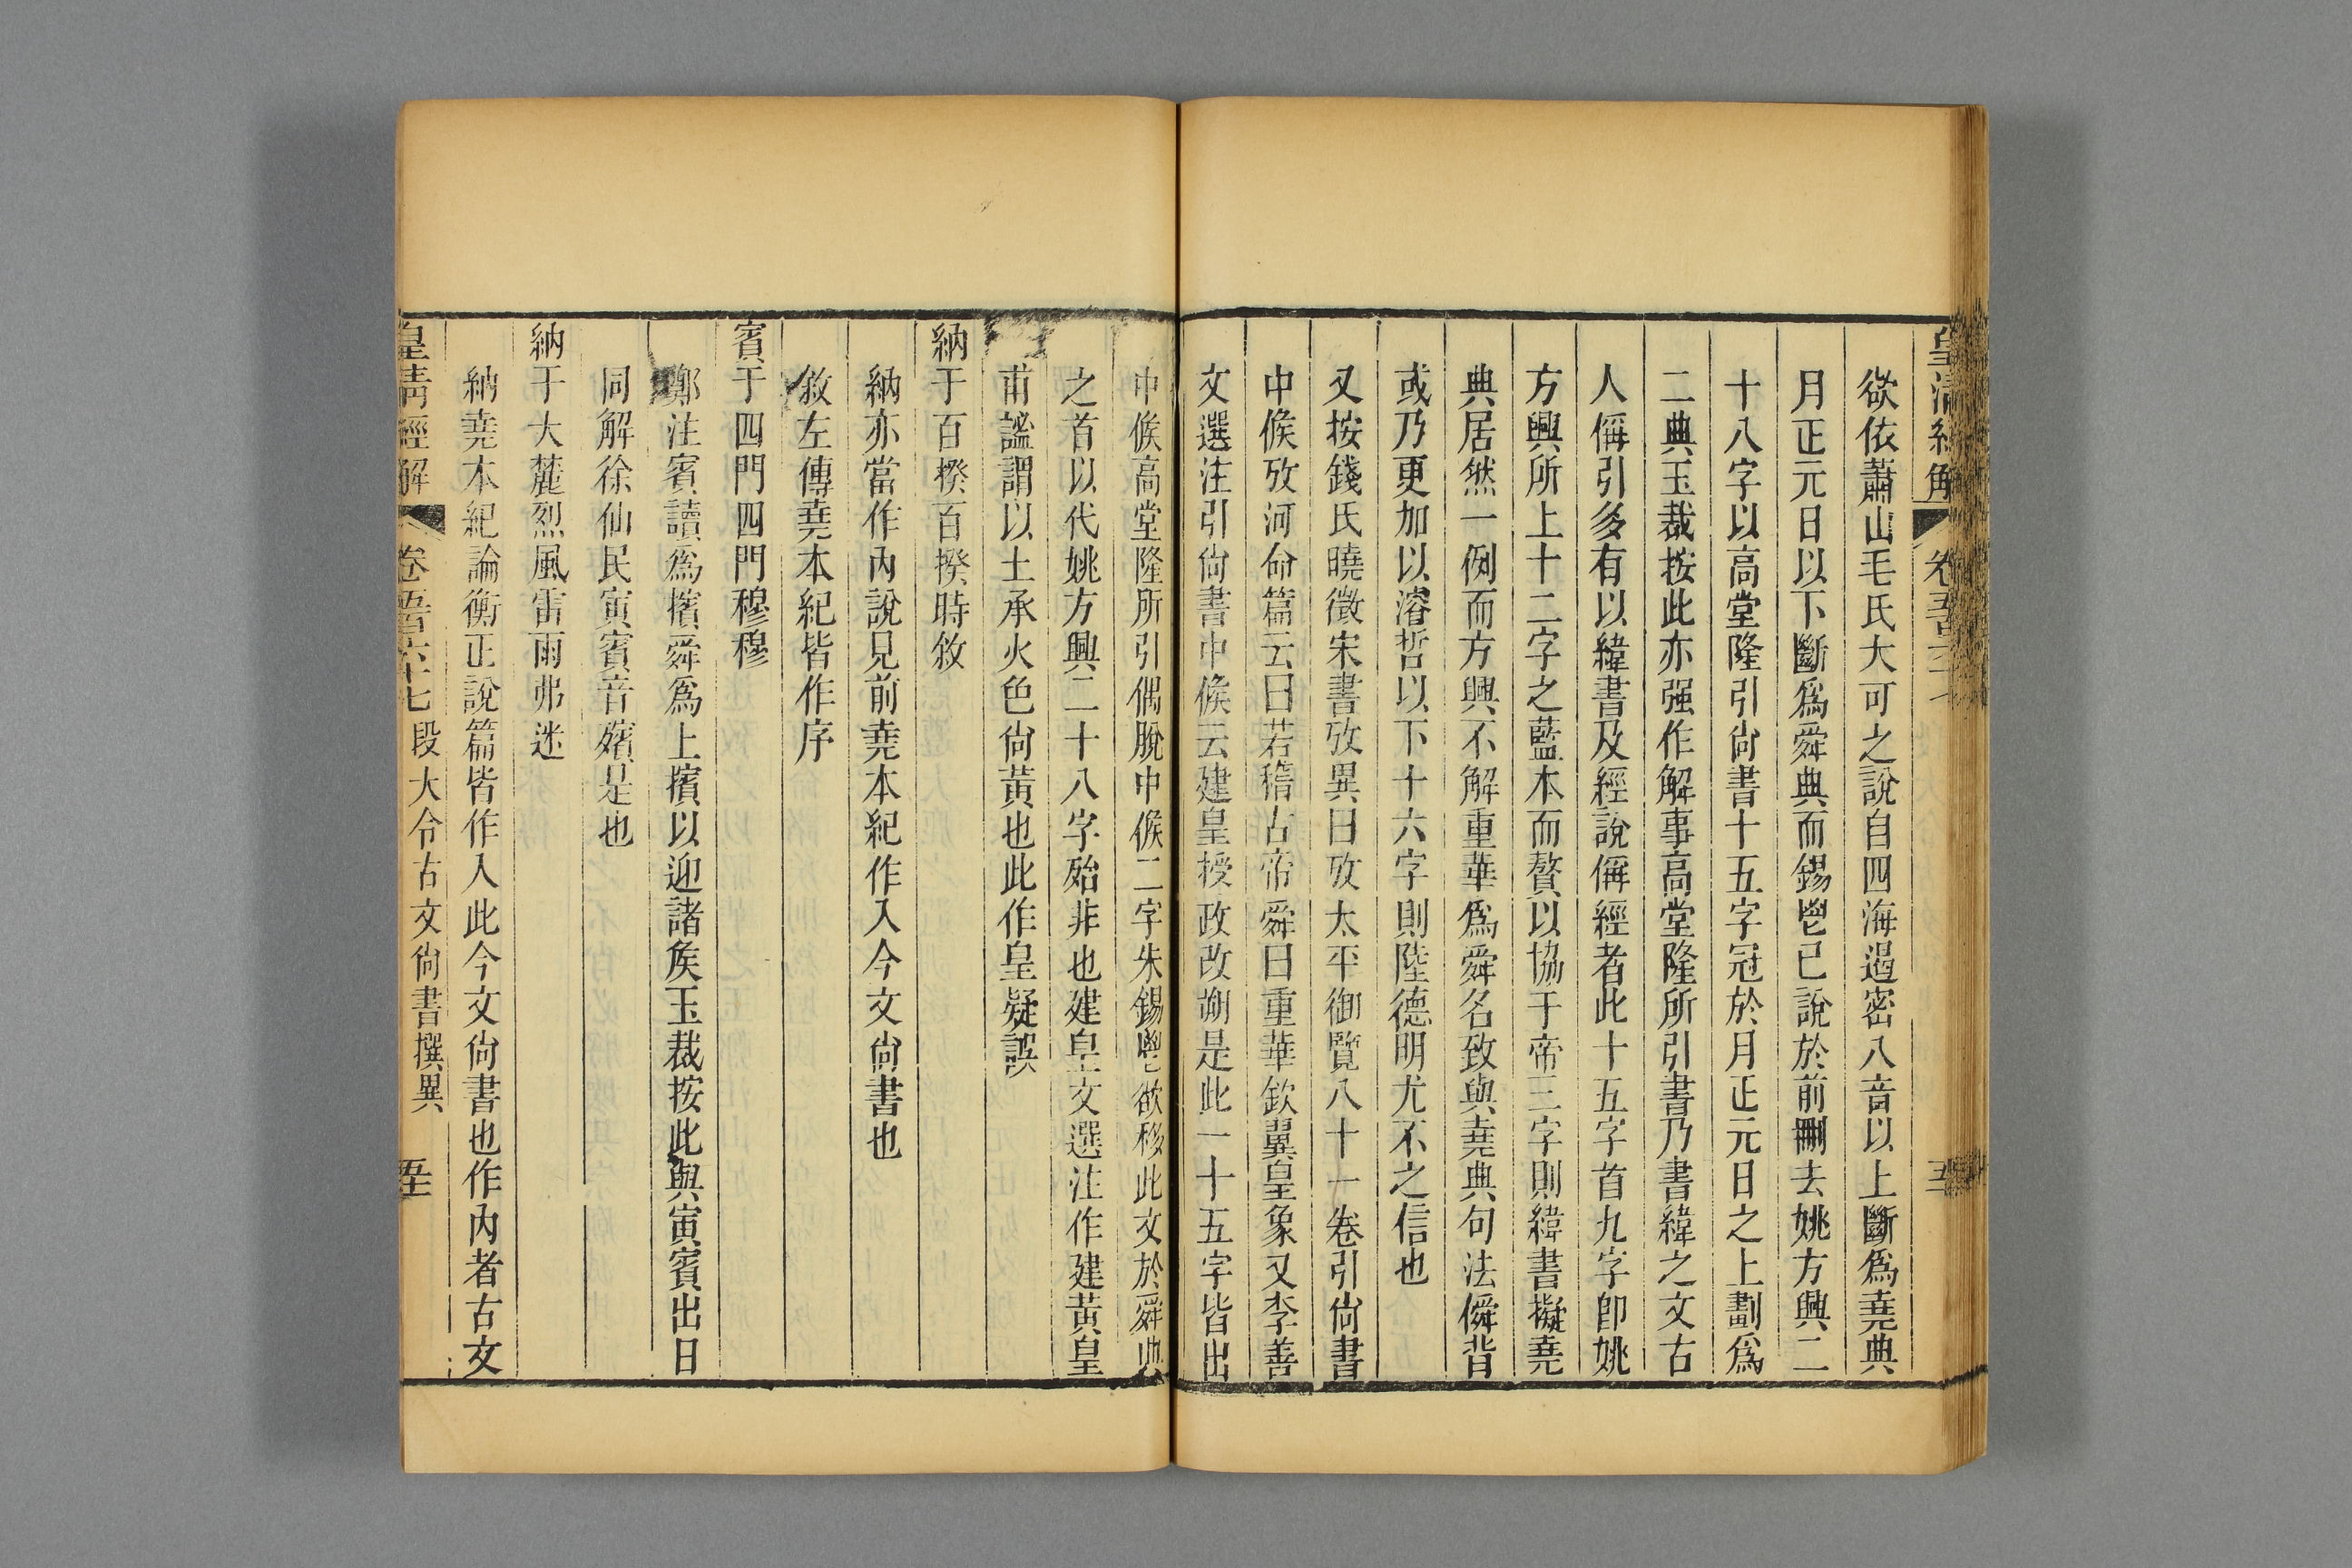 欲依蕭山毛氏大可之說自四海遏密八音以上斷爲堯典
月正元日以下斷爲舜典而錫鬯已說於前刪去姚方興二
十八字以高堂隆引尙書十五字冠於月正元日之上劃爲
二典玉裁按此亦强作解事高堂隆所引書乃書緯之文古
人偁引多有以緯書及經說偁經者此十五字首九字卽姚
方興所上十二字之藍本而贅以協于帝三字則緯書擬堯
典居然一例而方興不解重華爲舜名致與堯典句法僢背
或乃更加以濬哲以下十六字則陸德明尤不之信也
又按錢氏曉徵宋書攷異曰攷太平御覽八十一卷引尙書
中候攷河命篇云曰若稽古帝舜曰重華欽翼皇象又李善
文選注引尙書中候云建皇授政改朔是此一十五字皆出
中候高堂隆所引偶脫中候二字朱錫鬯欲移此文於舜典
之首以代姚方興二十八字殆非也建皇文選注作建黃皇
甫謐謂以土承火色尙黃也此作皇疑誤
納于百揆百揆時敘
納亦當作內說見前堯本紀作入今文尙書也
敘左傳堯本紀皆作序
賓于四門四門穆穆
鄭注賓讀爲擯舜爲上擯以迎諸矦玉裁按此與寅賓出日
同解徐仙民寅賓音殯是也
納于大麓烈風雷雨弗迷
納堯本紀論衡正說篇皆作入此今文尙書也作內者古文
皇清經解 卷五百六十七 段大令古文尙書撰異